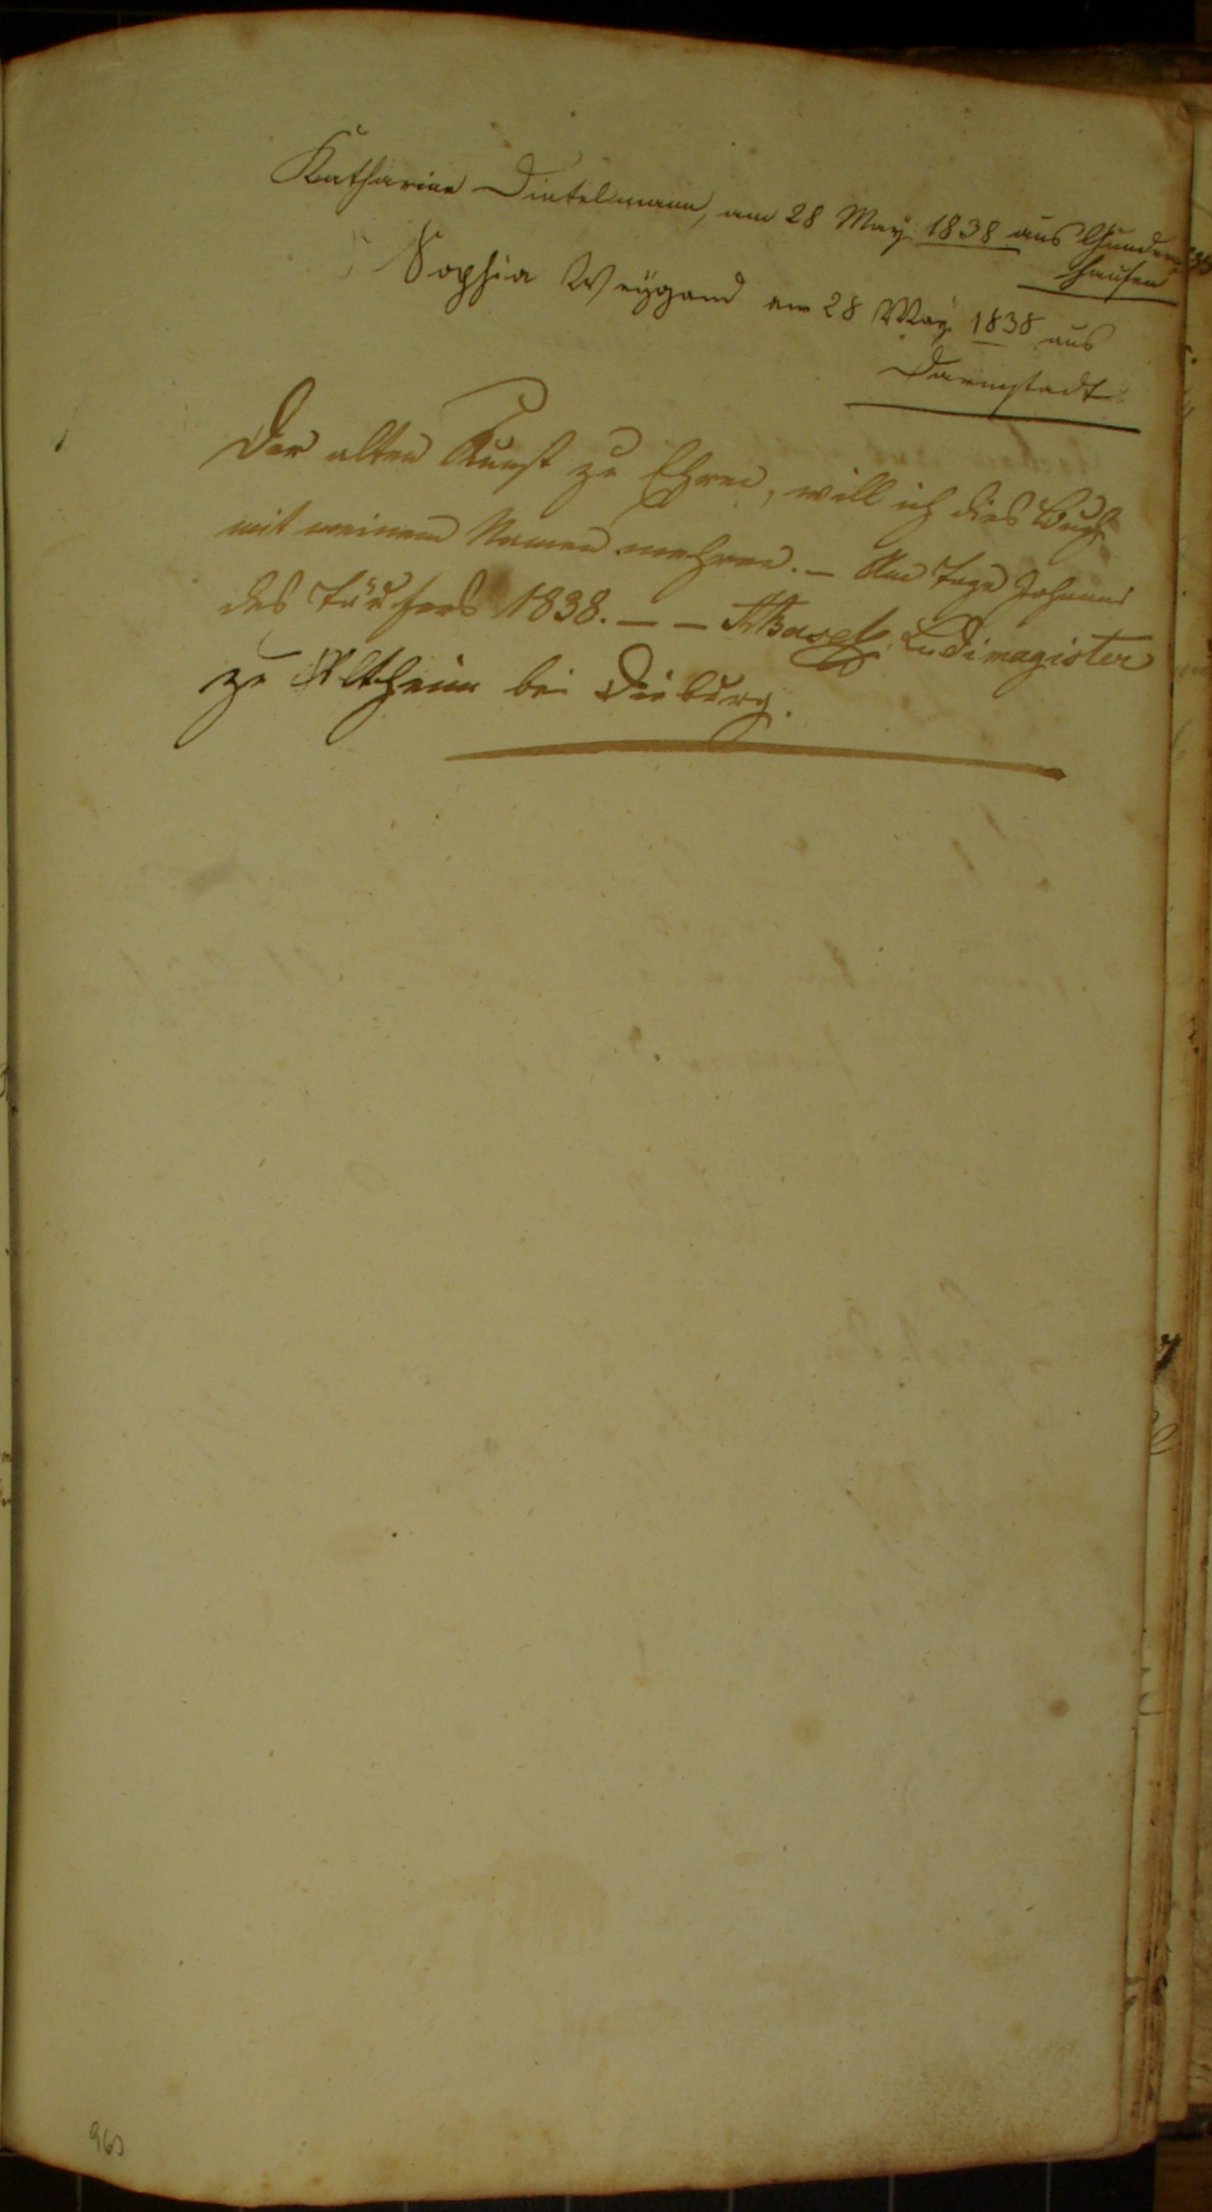 Katharine Dintelmann, am 28 May 1838 aus Gundern
hausen
Sophia Weÿgand am 28 May 1838 aus
Darmstadt.
Der alten Kunst zu Ehren, will ich dies Buch
mit meinem Namen mehren. – Am Tage Johannes
des Täufers 1838. – – Ludimagister
zu Altheim bei Dieburg.